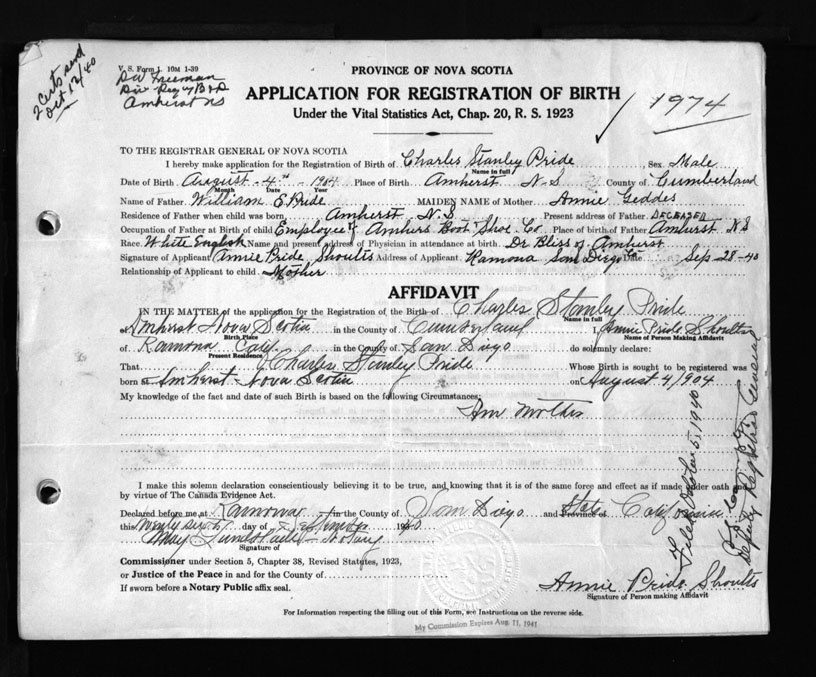 2 Certs send
Oct 12/40
V. S. Form 1. 10M 1-39
D W Freeman
Div Reg of B & D
Amherst NS
PROVINCE OF NOVA SCOTIA
APPLICATION FOR REGISTRATION OF BIRTH
Under the Vital Statistics Act, Chap. 20, R. S. 1923
1974
TO THE REGISTRAR GENERAL OF NOVA SCOTIA
I hereby make application for the Registration of Birth of Charles Stanley Pride Sex Male
Name in full
Date of Birth August - 4th - 1904 Place of Birth Amherst N-S County of Cumberland
Month Date Year
Name of Father William E Pride MAIDEN NAME of Mother Annie Geddes
Residence of Father when child was born Amherst N.S Present address of Father DECEASED
Occupation of Father at Birth of child Employee of Amhers Boot Shoe Co Place of birth of Father Amhurst NS
Race White English Name and present address of Physician in attendance at birth. Dr Bliss of Amherst
Signature of Applicant Annie Pride Shoults Address of Applicant Ramona San Diego Date Sep-28-40
Relationship of Applicant to child Mother
AFFIDAVIT
IN THE MATTER of the application for the Registration of the Birth of Charles Stanley Pride
Name in full
of Amherst Nova Scotia in the County of Cumberland I, Annie Pride Shoults
Birth Place Name of Person Making Affidavit
of Ramona Caly in the County of San Diego do solemnly declare:
Present Residence
That Charles Stanley Pride Whose Birth is sought to be registered was
born at Amherst Nova Scotia on August 4/904
My knowledge of the fact and date of such Birth is based on the following Circumstances:
Am Mother
I make this solemn declaration conscientiously believing it to be true, and knowing that it is of the same force and effect as if made under oath and
by virtue of The Canada Evidence Act.
Declared before me at Ramona in the County of San Diego and Province of State California
this day of September 1940
May Notary
Signature of
Commissioner under Section 5, Chapter 38, Revised Statutes, 1923,
or Justice of the Peace in and for the County of
If sworn before a Notary Public affix seal.
Annie Pride Shoults
Signature of Person making Affidavit
For Information respecting the filling out of this Form, see Instructions on the reverse side.
My Commission Expires Aug. 11, 1941
Filed October 5, 1940
Deputy Registrar General